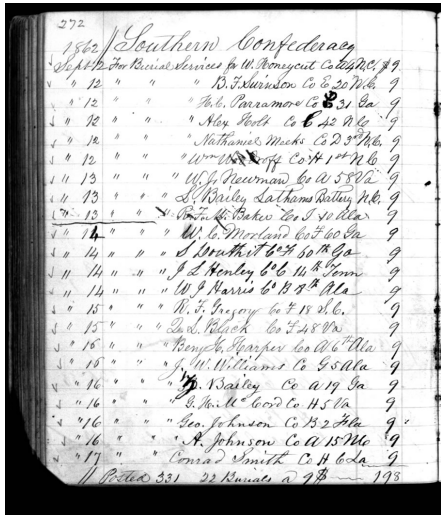 272
1862 // Southern Confederacy
Sept 12 For Burial Services for W. Honeycut Co A 4 N.C. $ 9
" 12 " " " B. F. Co E 20 N.C. 9
" 12 " " " H. C. Parramore Co 31 Ga 9
" 12 " " " Alex Holt Co C 42 N.C 9
" 12 " " " Nathaniel Meeks Co D 3rd N.C. 9
" 12 " " " Wm Co H 1st N.C 9
" 13 " " " W. J. Newman Co A 58 Va 9
" 13 " " " L. Bailey Lathams Battery N.C. 9
" 13 " " " Baker Co I 10 Ala 9
" 14 " " " W. C. Morland Co F 60 Ga 9
" 14 " " " S Douthit Co F 60th Ga 9
" 14 " " " J L Henley Co C 14th Tenn 9
" 14 " " " W J Harris Co B 8th Ala 9
" 15 " " " R. F. Gregory Co F 18 S.C. 9
" 15 " " " L. Black Co F 48 Va 9
" 15 " " " Benj. H. Harper Co A 6th Ala 9
" 16 " " " J. W. Williams Co G 5 Ala 9
" 16 " " " Bailey Co A 19 Ga 9
" 16 " " " G. H. McCord Co H 5 Va 9
" 16 " " " Geo. Johnson Co B 2 Fla 9
" 16 " " " A. Johnson Co A 15 9
" 17 " " " Conrad Smith Co H 6 La 9
// Posted 331 22 Burials a 9$ 198